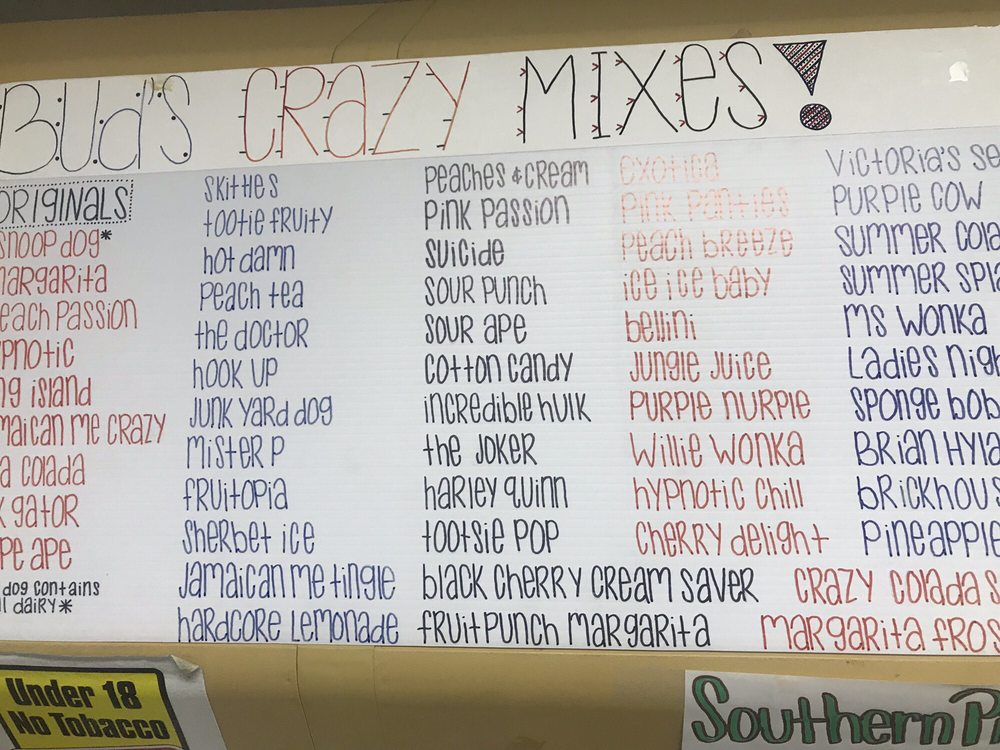 BUd's CRaZY MIXes!
ORIGINALS
snoop dog*
margarita
each Passion
pnotic
ng island
maican me CRAZY
a colada
k gator
pe ape
dog contains
l dairy*
skittles
tootie fruity
hot damn
Peach tea
the doctor
hook up
Junk yard dog
Mister P
fruitopia
Sherbet ice
Jamaican me tingle
hardcore Lemonade
Peaches & Cream
Pink Passion
Suicide
Sour Punch
Sour ape
Cotton Candy
incredible hulk
the Joker
harley quinn
tootsie Pop
black Cherry Cream Saver
fruit Punch Margarita
exotica
Pink Panties
Peach breeze
ice ice baby
bellini
Jungle Juice
Purple Nurple
Willie Wonka
hypnotic Chill
Cherry delight
Crazy Colada s
Margarita fros
Victoria's se
Purple Cow
Summer Cola
Summer Spla
Ms Wonka
Ladies nigh
Sponge bob
Brian Hyla
brickhous
Pineapple
Under 18
No Tobacco
Southern P